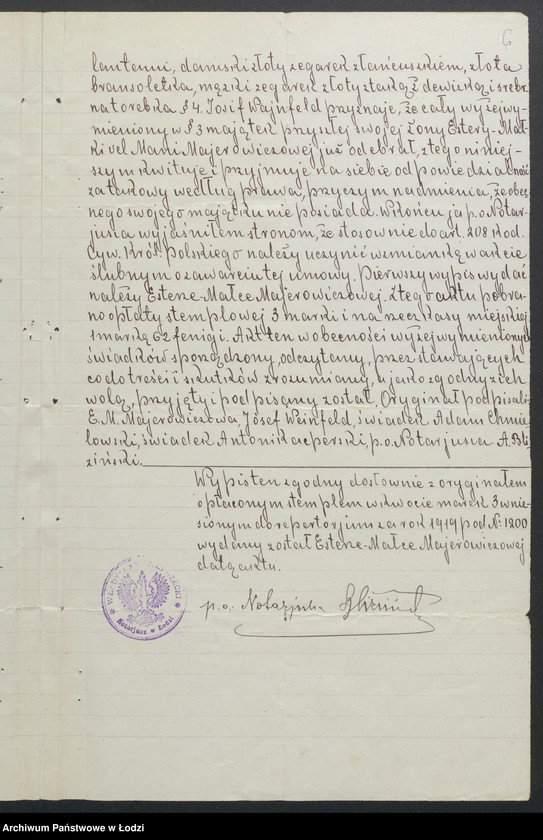 6
lantami, damski złoty zegarek z łańcuszkiem, złota
bransoletka, męzki zegarek złoty z taką ż dewizką i srebr-
na torebka § 4. Josif Wajnfeld przyznaje, że cały wyżej wy-
mieniony w § 3 majątek przyszłej swojej żony Estery-Mał-
ki vel Mani Majerowiczowej już odebrał, z tego niniej-
szym kwituje i przyjmuje na siebie odpowiedzialność
za takowy według prawa, przyczym nadmienia, że obec-
nego swojego majątku nie posiada. W końcu ja p.o. Notar-
jusza wyjaśniłem stronom, że stosownie do art. 208 Kod.
Cyw. Król. Polskiego należy uczynić wzmiankę w akcie
ślubnym o zawarciu tej umowy. Pierwszy wypis wydać
należy Esterze-Małce Majerowiczowej. Z tego aktu pobra-
no opłaty stemplowej 3 marki i na rzecz kasy miejskiej
1 markę 62 fenigi. Akt ten w obecności wyżej wymienionych
świadków sporządzony, odczytany, przez stawających
co do treści i skutków zrozumiany, a jako zgodny z ich
wolą, przyjęty i podpisany został. Oryginał podpisali:
E. M. Majerowiczówa, Josef Weinfeld, świadek Adam Chmie-
lowski, świadek Antoni Kacperski, p.o. Notarjusza A. Bli-
ziński.
Wypis ten zgodny dosłownie z oryginałem
opłaconym stemplem w kwocie marek 3 wnie-
sionym do repertorjum za rok 1919 pod № 1200
wydany został Esterze-Małce Majerowiczowej
data z aktu.
p.o. Notarjusza Bliziński
Notarjusz w Łodzi
Archiwum Państwowe w Łodzi